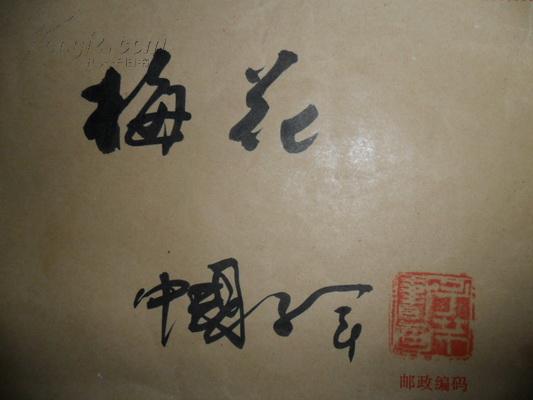 Kongfz.com
孔夫子旧书网
梅花
中國子年
邮政编码